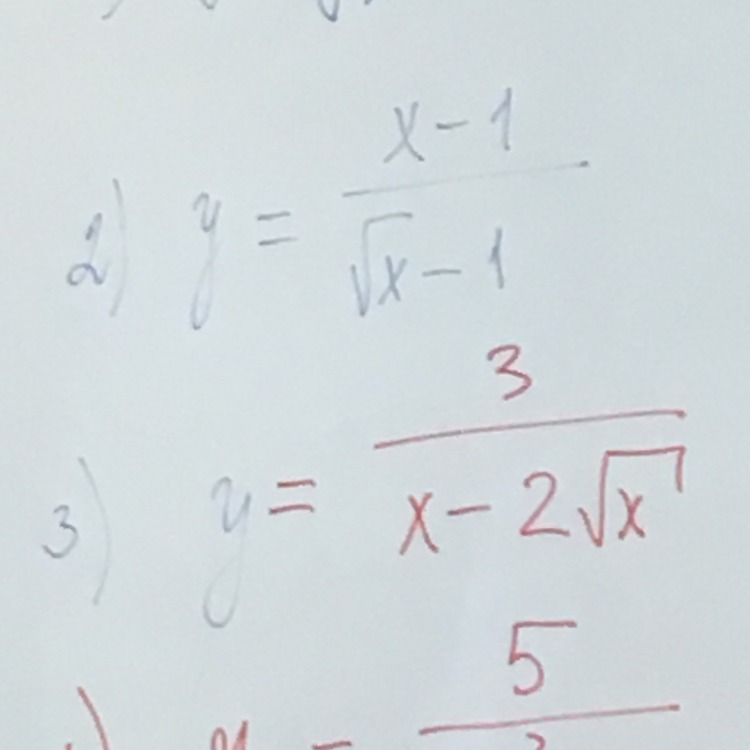 2) y = \frac{x-1}{\sqrt{x}-1}
3) y = \frac{3}{x-2\sqrt{x}}
5